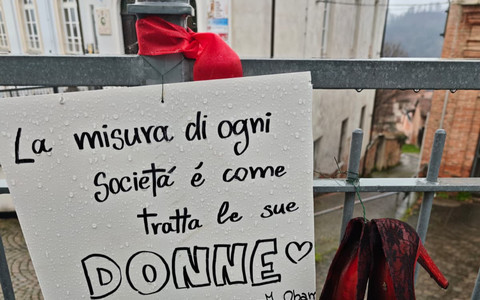 La misura di ogni
Societá é come
tratta le sue
DONNE ♡
M. Obam